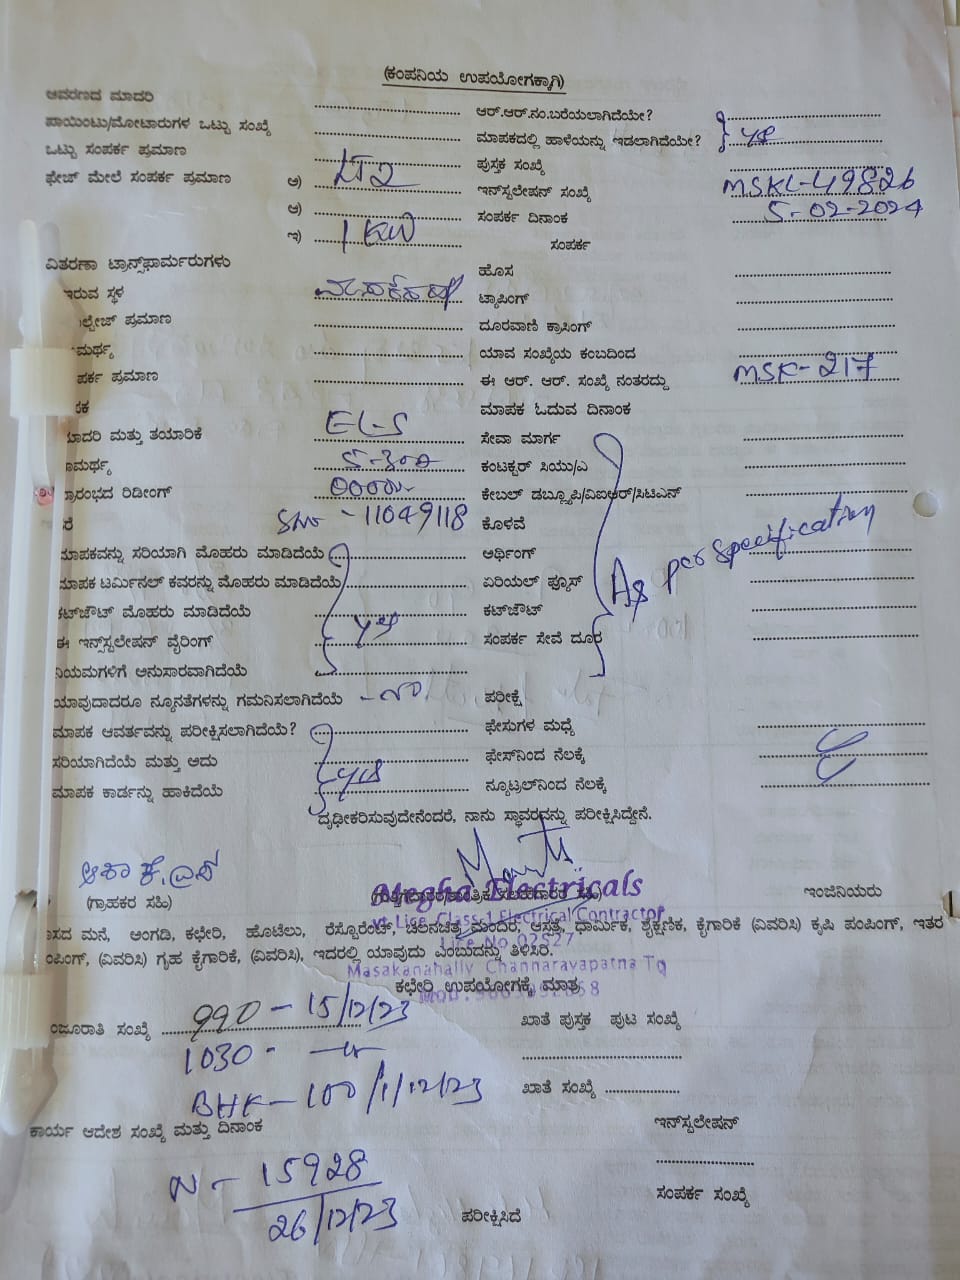 (ಕಂಪನಿಯ ಉಪಯೋಗಕ್ಕಾಗಿ)
ಆವರಣದ ಮಾದರಿ ಆರ್.ಆರ್.ನಂ.ಬರೆಯಲಾಗಿದೆಯೇ?
ಪಾಯಿಂಟು/ಮೋಟಾರುಗಳ ಒಟ್ಟು ಸಂಖ್ಯೆ ಮಾಪಕದಲ್ಲಿ ಹಾಳೆಯನ್ನು ಇಡಲಾಗಿದೆಯೇ? yes
ಒಟ್ಟು ಸಂಪರ್ಕ ಪ್ರಮಾಣ ಪುಸ್ತಕ ಸಂಖ್ಯೆ
ಫೇಜ್ ಮೇಲೆ ಸಂಪರ್ಕ ಪ್ರಮಾಣ ಅ) LT2 ಇನ್‌ಸ್ಟಲೇಷನ್ ಸಂಖ್ಯೆ MSKL-49826
ಆ) ಸಂಪರ್ಕ ದಿನಾಂಕ 5-02-2024
ಇ) 1 KW ಸಂಪರ್ಕ
ವಿತರಣಾ ಟ್ರಾನ್ಸ್‌ಫಾರ್ಮರುಗಳು ಹೊಸ
ಇರುವ ಸ್ಥಳ ಟ್ಯಾಪಿಂಗ್
ಲ್ಟೇಜ್ ಪ್ರಮಾಣ ದೂರವಾಣಿ ಕ್ರಾಸಿಂಗ್
ಮರ್ಥ್ಯ ಯಾವ ಸಂಖ್ಯೆಯ ಕಂಬದಿಂದ
ಪರ್ಕ ಪ್ರಮಾಣ ಈ ಆರ್. ಆರ್. ಸಂಖ್ಯೆ ನಂತರದ್ದು MSK-217
ಕ ಮಾಪಕ ಓದುವ ದಿನಾಂಕ
ಾದರಿ ಮತ್ತು ತಯಾರಿಕೆ ELS ಸೇವಾ ಮಾರ್ಗ
ಾಮರ್ಥ್ಯ 5-300 ಕಂಟಕ್ಟರ್ ಸಿಯು/ಎ
್ರಾರಂಭದ ರಿಡೀಂಗ್ ಕೇಬಲ್ ಡಬ್ಲ್ಯೂಪಿ/ವಿಐಆರ್/ಸಿಟಿಎಸ್
ರೆ SNo - 11049118 ಕೊಳವೆ
ಮಾಪಕವನ್ನು ಸರಿಯಾಗಿ ಮೊಹರು ಮಾಡಿದೆಯೆ ಅರ್ಥಿಂಗ್ As per specification
ಮಾಪಕ ಟರ್ಮಿನಲ್ ಕವರನ್ನು ಮೊಹರು ಮಾಡಿದೆಯೆ ಏರಿಯಲ್ ಫ್ಯೂಸ್
ಕಟ್‌ಔಟ್ ಮೊಹರು ಮಾಡಿದೆಯೆ yes ಕಟ್‌ಔಟ್
ಈ ಇನ್ಸ್‌ಸ್ಟಲೇಷನ್ ವೈರಿಂಗ್ ಸಂಪರ್ಕ ಸೇವೆ ದೂರ
ನಿಯಮಗಳಿಗೆ ಅನುಸಾರವಾಗಿದೆಯೆ
ಯಾವುದಾದರೂ ನ್ಯೂನತೆಗಳನ್ನು ಗಮನಿಸಲಾಗಿದೆಯೆ - No. ಪರೀಕ್ಷೆ
ಮಾಪಕ ಆವರ್ತವನ್ನು ಪರೀಕ್ಷಿಸಲಾಗಿದೆಯೆ? ಫೇಸುಗಳ ಮಧ್ಯೆ
ಸರಿಯಾಗಿದೆಯೆ ಮತ್ತು ಅದು yes ಫೇಸ್‌ನಿಂದ ನೆಲಕ್ಕೆ
ಮಾಪಕ ಕಾರ್ಡನ್ನು ಹಾಕಿದೆಯೆ ನ್ಯೂಟ್ರಲ್‌ನಿಂದ ನೆಲಕ್ಕೆ
ದೃಢೀಕರಿಸುವುದೇನೆಂದರೆ, ನಾನು ಸ್ಥಾವರವನ್ನು ಪರೀಕ್ಷಿಸಿದ್ದೇನೆ.
ಆಶಾ ಕೆ.ಎಸ್
Megha Electricals
(ಗ್ರಾಹಕರ ಸಹಿ) ಇಂಜಿನಿಯರು
Class-1 Electrical Contractor
ಾಸದ ಮನೆ, ಅಂಗಡಿ, ಕಛೇರಿ, ಹೋಟೆಲು, ರೆಸ್ಟೊರೆಂಟ್, ಚಲನಚಿತ್ರ ಮಂದಿರ, ಆಸ್ಪತ್ರೆ, ಧಾರ್ಮಿಕ, ಶೈಕ್ಷಣಿಕ, ಕೈಗಾರಿಕೆ (ವಿವರಿಸಿ) ಕೃಷಿ ಪಂಪಿಂಗ್, ಇತರ
Lice No 02527
ಂಪಿಂಗ್, (ವಿವರಿಸಿ) ಗೃಹ ಕೈಗಾರಿಕೆ, (ವಿವರಿಸಿ), ಇದರಲ್ಲಿ ಯಾವುದು ಎಂಬುದನ್ನು ತಿಳಿಸಿರಿ.
Masakanahally Channarayapatna Tq
ಕಛೇರಿ ಉಪಯೋಗಕ್ಕೆ ಮಾತ್ರ
ಂಜೂರಾತಿ ಸಂಖ್ಯೆ 990 - 15/12/23 ಖಾತೆ ಪುಸ್ತಕ ಪುಟ ಸಂಖ್ಯೆ
1030 -
BHK - 100/1/12/23 ಖಾತೆ ಸಂಖ್ಯೆ
ಕಾರ್ಯ ಆದೇಶ ಸಂಖ್ಯೆ ಮತ್ತು ದಿನಾಂಕ ಇನ್‌ಸ್ಟಲೇಷನ್
N - 15928
26/12/23 ಸಂಪರ್ಕ ಸಂಖ್ಯೆ
ಪರೀಕ್ಷಿಸಿದೆ